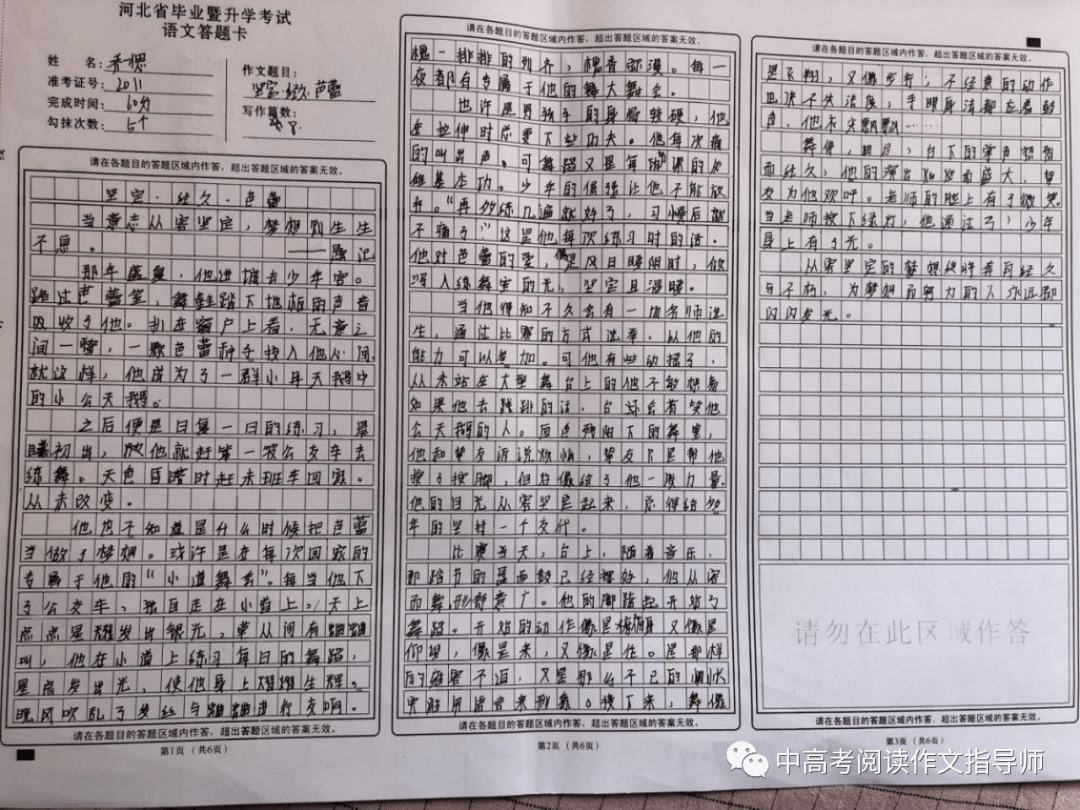 河北省毕业暨升学考试
语文答题卡
姓 名：乔
准考证号：2011
完成时间：60分
勾抹次数：5个
作文题目：
坚定·经久·芭蕾
写作篇数：
请在各题目的答题区域内作答，超出答题区域的答案无效。
坚定·经久·芭蕾
当意志从容坚定，梦想则生生
不息。 ——题记
那年盛夏，他进城去少年宫。
路过芭蕾室，舞鞋踏下地板的声音
吸收了他。扒在窗户上看，无意之
间一瞥，一颗芭蕾种子投入他心间
就这样，他成为了一群小母天鹅中
的小公天鹅。
之后便是日复一日的练习，晨
曦初出，他就赶第一班公交车去
练舞。天色昏暗时赶末班车回家。
从未改变。
他也不知道是什么时候把芭蕾
当做了梦想。或许是在每次回家的
专属于他的“小道舞台”。每当他下
了公交车，独自走在小道上，天上
点点星耀发出银光，草丛间有蛐蛐
叫，他在小道上练习每日的舞蹈，
星点发出光，使他身上熠熠生辉。
晚风吹乱了发丝与蛐蛐进行交响。
请在各题目的答题区域内作答，超出答题区域的答案无效。
第1页 （共6页）
请在各题目的答题区域内作答，超出答题区域的答案无效。
槐一排排的列齐，槐香弥漫。每一
夜都有专属于他的舞大舞会。
也许是男孩子的身骨较硬，他
在拉伸时总要下些功夫。他每次痛
的叫出声。可舞蹈又是每次课的必
练基本功。少年的倔强让他不能放
弃。“再多练几遍就好了，习惯后就
不痛了”这是他每次练习时的话。
他对芭蕾的爱，像是风日暖阳时，做
照入练舞室的光，坚定且温暖。
当他得知不久会有一位名师选
生，通过比赛的方式选拳，以他的
能力可以参加。可他有些动摇了，
从未站在大型舞台上的他不敢想若
如果他去跳的话，台场会有笑他
公天鹅的人。面色残阳下的舞室，
他和挚友诉说烦恼，挚友只是帮他
按了按脚，但却像给了他一股力量
他的目光从容坚定起来，总得给多
年的坚持一个交代。
比赛当天，台上，随着音乐，
那踏节的墨面鼓已经摆好，他从容
而舞，形舒意广。他的脚踏起开始了
舞蹈。开始的动作像是俯身又像是
仰望，像是来，又像是往。是那样
的雍容不迫，又是那么不已的惆怅
实难用语言来形容。接下来，舞像
请在各题目的答题区域内作答，超出答题区域的答案无效。
第2页 （共6页）
请在各题目的答题区域内作答，超出答题区域的答案无效。
是飞翔，又像步行，不经意的动作
也决不失法度，手眼身法都应着鼓
声。他衣尖飘飘……
舞停，曲尽，台下的掌声热烈
而经久，他的演出如此而盛大，挚
友为他欢呼。老师的脸上有了微笑
当老师按下绿灯，他通过了！少年
身上有了光。
从容坚定的梦想终将奔向经久
与不朽，为梦想而努力的人永远都
闪闪发光。
请勿在此区域作答
请在各题目的答题区域内作答，超出答题区域的答案无效。
第3页 （共6页）
中高考阅读作文指导师